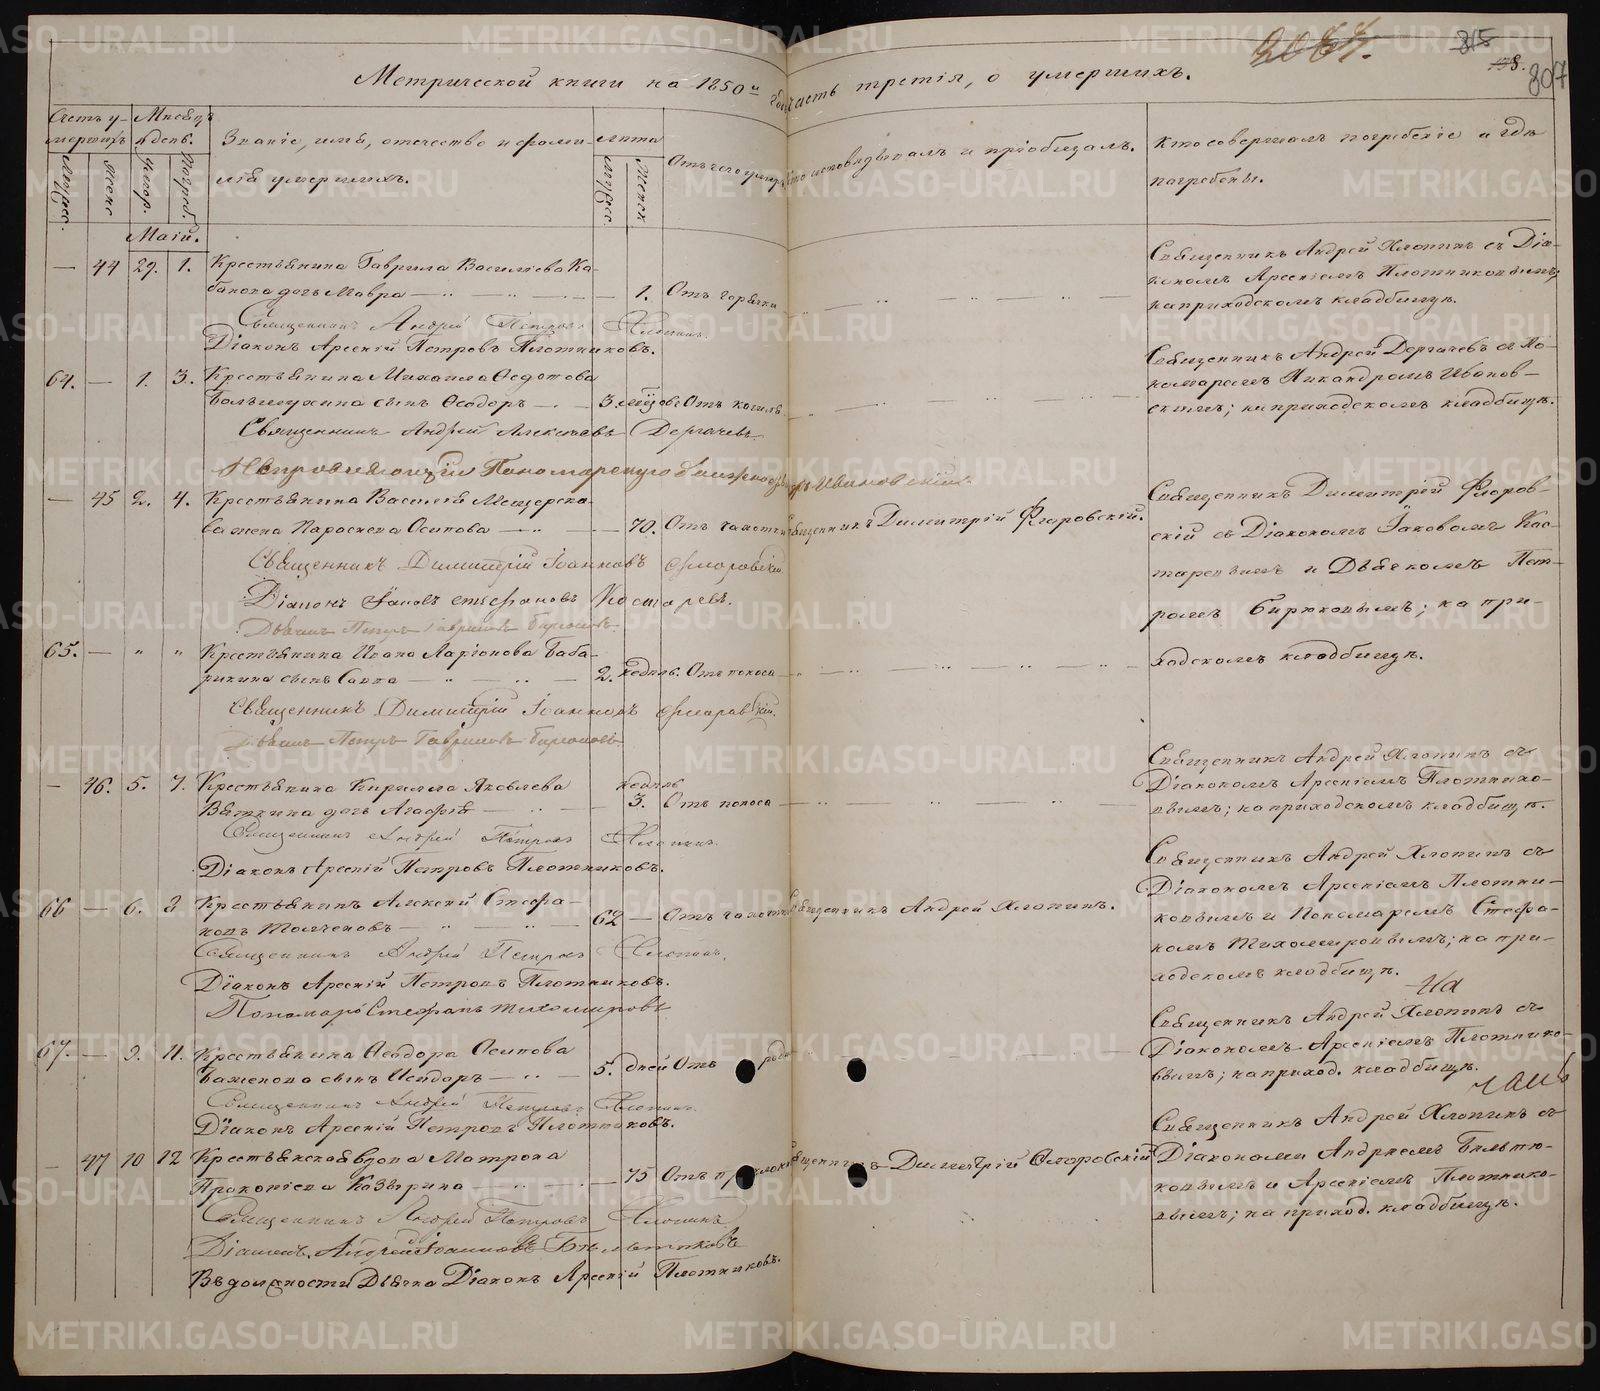 2067.
815
807
Метрической книги на 1850й годъ часть третія, о умершихъ.
Счетъ умершихъ
Мужес.
Женс.
Мѣсяцъ и день.
умер.
погреб.
Званіе, имя, отечество и фамилія умершихъ.
Лѣта
Мужес.
Женск.
Отъ чего умеръ
Кто исповѣдывалъ и пріобщалъ.
Кто совершалъ погребеніе и гдѣ погребены.
Маій.
— 44 29. 1. Крестьянина Гаврила Василіева Ка-
бакова дочь Мавра — 1. Отъ горячки
Священникъ Андрей Хлопинъ съ Діа-
кономъ Арсеніемъ Плотниковымъ;
на приходскомъ кладбищѣ.
Священникъ Андрей Петровъ Хлопинъ.
Діаконъ Арсеній Петровъ Плотниковъ.
64. — 1. 3. Крестьянина Михаила Ѳедотова
сынъ Ѳеодоръ — 3. Отъ кашля
Священникъ Андрей Дергачевъ съ По-
номаремъ Никандромъ Иванов-
скимъ; на приходскомъ кладбищѣ.
Священникъ Андрей Алексѣевъ Дергачевъ
Ивановскій.
— 45 2. 4. Крестьянина Василія Мещерско-
ва жена Параскева Осипова — 70. Отъ чахотки Священникъ Димитрій Флоровскій.
Священникъ Димитрій Флоров-
скій съ Діакономъ Іаковомъ Кос-
таревымъ и Дьячкомъ Пет-
ромъ Бирюковымъ; на при-
ходскомъ кладбищѣ.
Священникъ Димитрій Іоанновъ Флоровскій
Діаконъ Іаковъ Стефановъ Костаревъ.
Дьячекъ Петръ Гавриловъ Бирюковъ.
65. — " " Крестьянина Ивана Ларіонова Баба-
рикина сынъ Савва — 2. недѣль. Отъ поноса
Священникъ Димитрій Іоанновъ Флоровскій.
Дьячекъ Петръ Гавриловъ Бирюковъ
— 46. 5. 7. Крестьянина Кирилла Яковлева
Вяткина дочь Агафія — недѣль 3. Отъ поноса
Священникъ Андрей Хлопинъ съ
Діакономъ Арсеніемъ Плотнико-
вымъ; на приходскомъ кладбищѣ.
Священникъ Андрей Петровъ Хлопинъ.
Діаконъ Арсеній Петровъ Плотниковъ.
66 — 6. 8 Крестьянинъ Алексѣй Стефа-
новъ Толченовъ — 62 — Отъ чахотки Священникъ Андрей Хлопинъ.
Священникъ Андрей Хлопинъ съ
Діакономъ Арсеніемъ Плотни-
ковымъ и Пономаремъ Стефа-
номъ Тихомировымъ; на при-
ходскомъ кладбищѣ.
Священникъ Андрей Петровъ Хлопинъ.
Діаконъ Арсеній Петровъ Плотниковъ.
Пономарь Стефанъ Тихомировъ
67. — 9. 11. Крестьянина Ѳеодора Осипова
Баженова сынъ Исидоръ — 5. дней Отъ
Священникъ Андрей Хлопинъ съ
Діакономъ Арсеніемъ Плотнико-
вымъ; на приход. кладбищѣ.
Священникъ Андрей Петровъ Хлопинъ.
Діаконъ Арсеній Петровъ Плотниковъ.
— 47 10 12 Крестьянская вдова Матрона
Прокопіева Казырина — 75 Отъ Священникъ Димитрій Флоровскій
Священникъ Андрей Хлопинъ съ
Діаконами Андреемъ Бѣльтю-
ковымъ и Арсеніемъ Плотнико-
вымъ; на приход. кладбищѣ.
Священникъ Андрей Петровъ Хлопинъ
Діаконъ Андрей Іоанновъ Бѣльтюковъ
Въ должности Дьячка Діаконъ Арсеній Плотниковъ.
METRIKI.GASO-URAL.RU